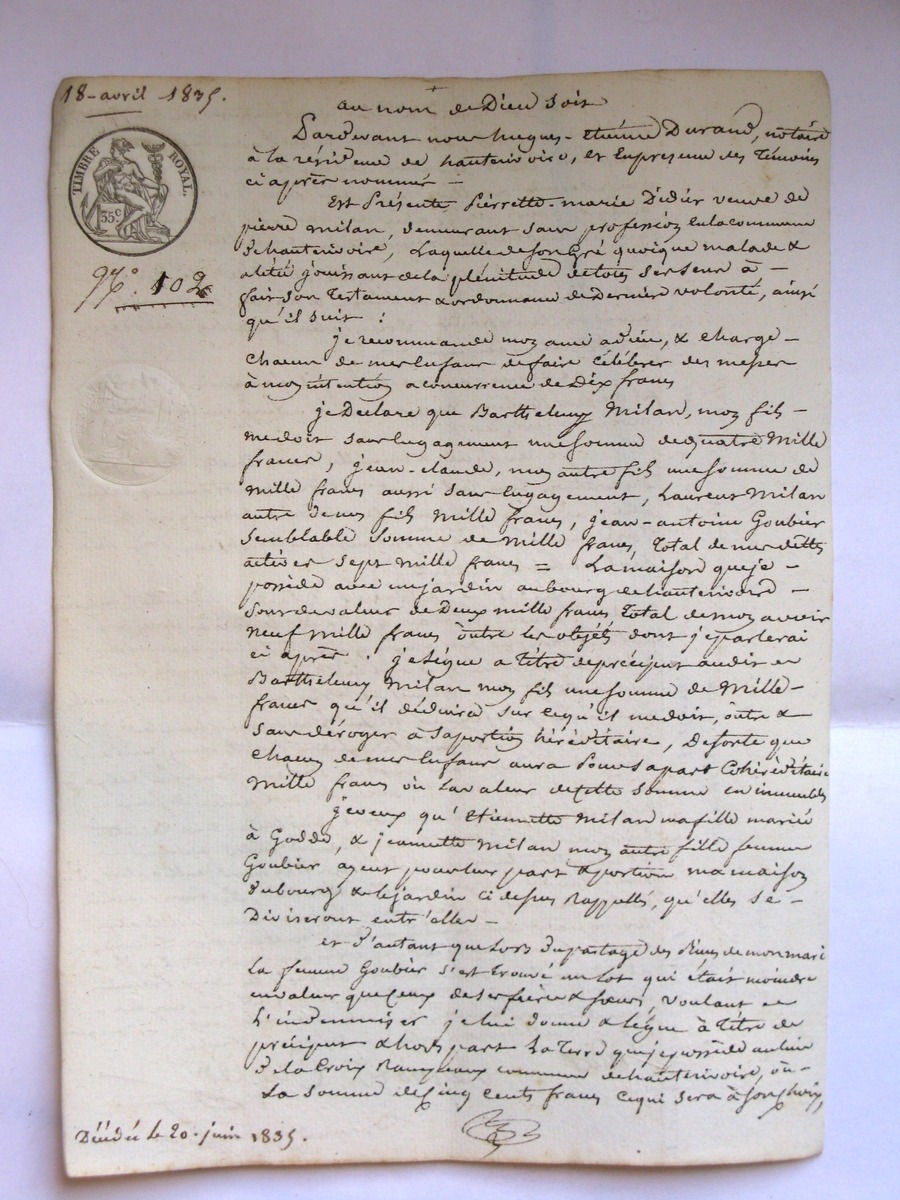 18 - avril 1835.
au nom de Dieu soit
Pardevant nous hugues - etienne Durand, notaire
TIMBRE ROYAL.
35c
à la résidence de hauterivoire, et en presence des Témoins
ci après nommés -
Est Présente, Pierrette marie Didier veuve de
pierre milan, demeurant sans profession en la commune
de hauterivoire, Laquelle de son gré quoique malade &
alitée jouissant de la plénitude de tous ses sens à -
N.° 102
fait son Testament & ordonnance de Dernière volonté, ainsi
qu'il suit :
je recommande mon ame a dieu, & charge -
chacun de mes Enfans de faire célébrer des messes
à mon intention a concurrence de Dix francs
je Declare que Barthelemy Milan, mon fils -
me doit sans Engagement une somme de quatre Mille
francs, jean-claude, mon autre fils une somme de
mille francs aussi sans Engagement, Laurent Milan
autre de mes fils Mille francs, jean-antoine Goubier
semblable somme de Mille francs, Total de mes dettes
actives sept Mille francs = La maison que je -
possède avec un jardin au bourg de hauterivoire -
sont de valeur de Deux mille francs Total de mon avoir
neuf Mille francs outre les objets dont je parlerai
ci après : je Lègue a titre de préciput audit
Barthelemy Milan mon fils une somme de Mille -
francs qu'il déduira sur ce qu'il me doit, outre &
sans déroger a sa portion héréditaire, De sorte que
chacun de mes Enfans aura Pour sa part Cohéréditaire
Mille francs ou La valeur de cette somme en immeubles
je veux qu'Etiennette Milan ma fille mariée
à Goddé, & jeannette Milan mon autre fille femme
Goubier ayent pour leur part & portion ma maison
du bourg & le jardin ci dessus Rappellés, qu'elles se -
Diviseront entr'elles -
et d'autant que Lors du partage des Biens de mon mari
La femme Goubier s'est trouvé un Lot qui était moindre
en valeur que ceux de ses frères & sœurs, voulant
L'indemniser je lui donne & lègue à Titre de
préciput & hors part La Terre que je possède au lieu
de la Croix commune de hauterivoire, ou -
La somme de Cinq Cents francs ce qui sera à son Choix,
Décédée le 20 - juin 1835.